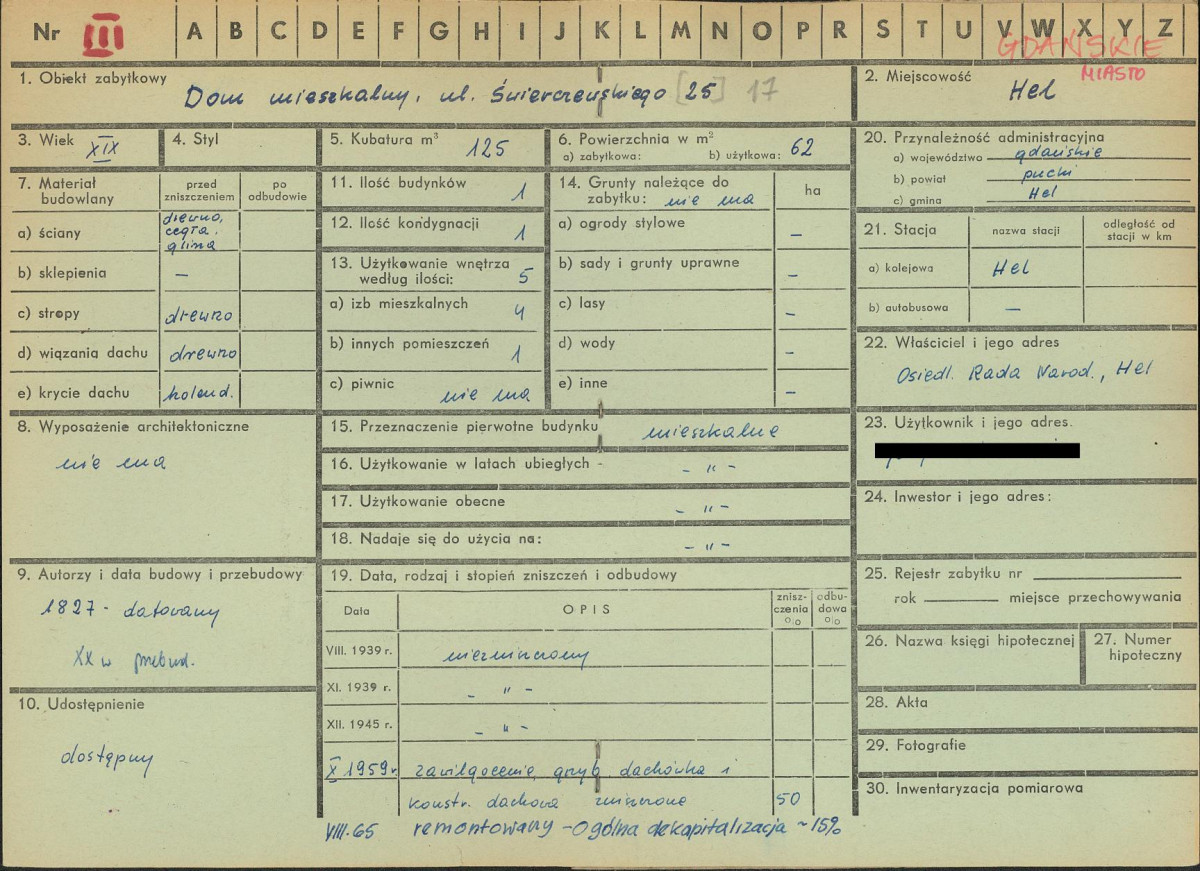 Nr III A B C D E F G H I J K L M N O P R S T U V W X Y Z
GDAŃSKIE
MIASTO
1. Obiekt zabytkowy
Dom mieszkalny, ul. Świerczewskiego [25] 17
2. Miejscowość
Hel
3. Wiek XIX
4. Styl
5. Kubatura m³ 125
6. Powierzchnia w m²
a) zabytkowa: b) użytkowa: 62
20. Przynależność administracyjna
a) województwo gdańskie
b) powiat pucki
c) gmina Hel
7. Materiał budowlany
przed zniszczeniem
po odbudowie
a) ściany drewno, cegła, glina
b) sklepienia —
c) stropy drewno
d) wiązanią dachu drewno
e) krycie dachu holend.
11. Ilość budynków 1
12. Ilość kondygnacji 1
13. Użytkowanie wnętrza
według ilości: 5
a) izb mieszkalnych 4
b) innych pomieszczeń 1
c) piwnic nie ma
14. Grunty należące do
zabytku: nie ma
ha
a) ogrody stylowe —
b) sady i grunty uprawne —
c) lasy —
d) wody —
e) inne —
21. Stacja
nazwa stacji
odległość od
stacji w km
a) kolejowa Hel
b) autobusowa —
22. Właściciel i jego adres
Osiedl. Rada Narod., Hel
8. Wyposażenie architektoniczne
nie ma
15. Przeznaczenie pierwotne budynku mieszkalne
16. Użytkowanie w latach ubiegłych - - " -
17. Użytkowanie obecne - " -
18. Nadaje się do użycia na: - " -
23. Użytkownik i jego adres.
24. Inwestor i jego adres:
9. Autorzy i data budowy i przebudowy
1827 - datowany
XX w przebud.
10. Udostępnienie
dostępny
19. Data, rodzaj i stopień zniszczeń i odbudowy
Data
OPIS
zniszczenia %
odbudowa %
VIII. 1939 r. niezniszczony
XI. 1939 r. - " -
XII. 1945 r. - " -
X 1959 r. zawilgocenie, grzyb, dachówka i
konstr. dachowa zniszczone 50
VIII.65 remontowany - ogólna dekapitalizacja ~ 15%
25. Rejestr zabytku nr
rok miejsce przechowywania
26. Nazwa księgi hipotecznej
27. Numer
hipoteczny
28. Akta
29. Fotografie
30. Inwentaryzacja pomiarowa